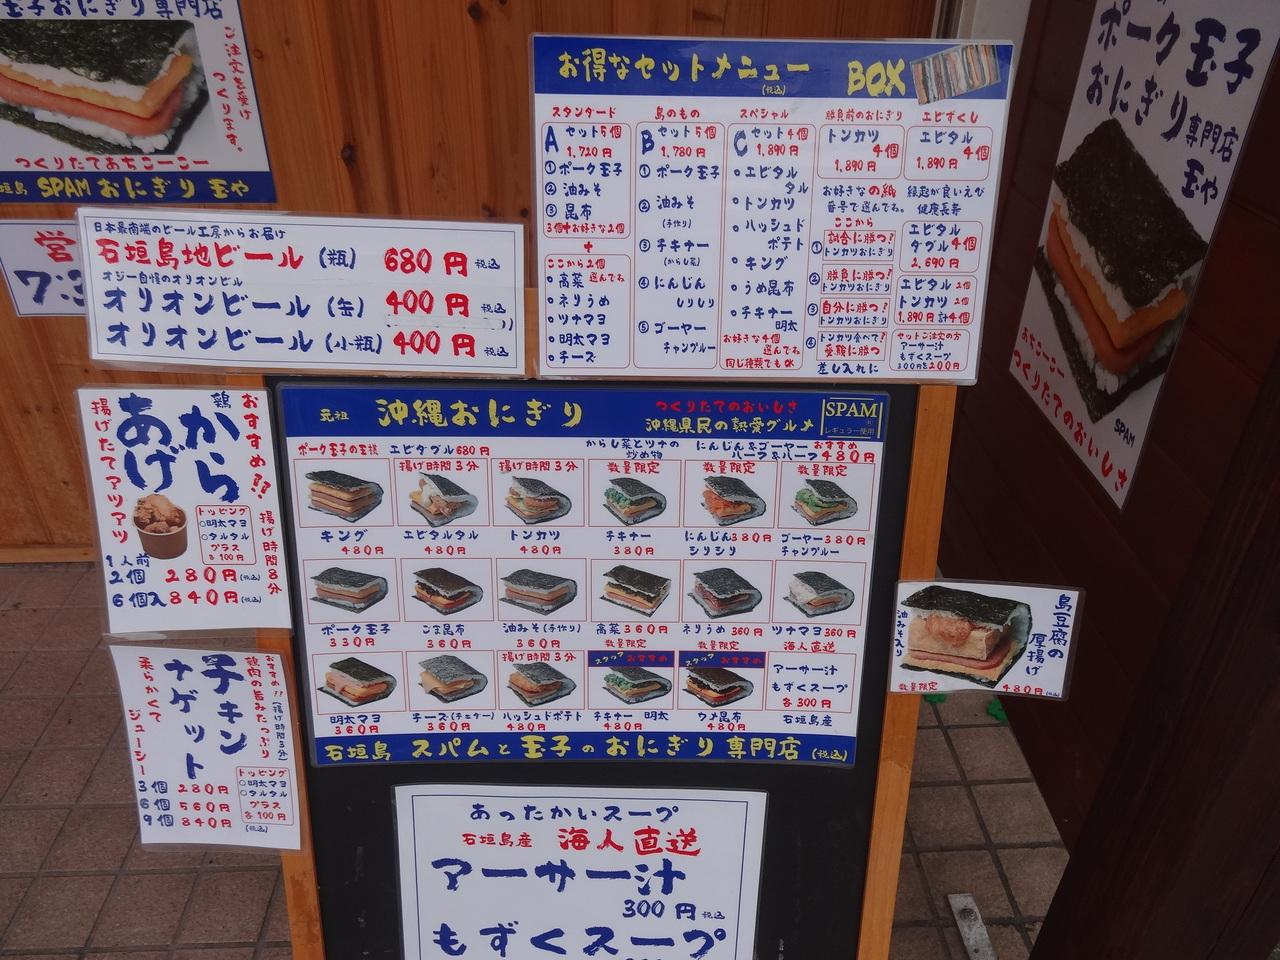 玉子おにぎり専門店
ご注文を受け
つくります。
つくりたてあちこーこー
SPAM おにぎり 玉や
営
7:3
日本最南端のビール工房からお届け
石垣島地ビール (瓶) 680円 税込
オジー自慢のオリオンビール
オリオンビール (缶) 400円 税込
オリオンビール (小瓶) 400円 税込
お得なセットメニュー BOX
(税込)
スタンダード
A セット5個
1,720円
①ポーク玉子
②油みそ
③昆布
3個+お好きな2個
+
ここから2個
選んでね
・高菜
・ネリうめ
・ツナマヨ
・明太マヨ
・チーズ
島のもの
B セット5個
1,780円
①ポーク玉子
②油みそ
(手作り)
③チキナー
(からし菜)
④にんじん
しりしり
⑤ゴーヤー
チャンプルー
スペシャル
C セット4個
1,890円
・エビタル
タル
・トンカツ
・ハッシュド
ポテト
・キング
・うめ昆布
・チキナー
明太
お好きな4個
選んでね
同じ種類でもOK
勝負前のおにぎり
トンカツ
4個
1,890円
お好きなの紙
番号で選んでね。
ここから
①試合に勝つ!
トンカツおにぎり
②勝負に勝つ!
トンカツおにぎり
③自分に勝つ!
トンカツおにぎり
④トンカツ食べて!
受験に勝つ
差し入れに
エビずくし
エビタル
4個
1,890円
縁起が良いえび
健康長寿
エビタル
ダブル4個
2,690円
エビタル2個
トンカツ2個
1,890円 計4個
セットご注文の方
アーサー汁
もずくスープ
300円を200円
ポーク玉子
おにぎり専門店
玉や
あちこーこー
つくりたてのおいしさ
SPAM
おすすめ!!
鶏 から
あげ
揚げたてアツアツ
揚げ時間8分
トッピング
○明太マヨ
○タルタル
プラス
各100円
1人前
2個 280円(税込)
6個入 840円(税込)
元祖 沖縄おにぎり
つくりたてのおいしさ
沖縄県民の熱愛グルメ
SPAM
レギュラー使用
ポーク玉子の王様 エビダブル680円
からし菜とツナの
炒め物
にんじん&ゴーヤー おすすめ
ハーフ&ハーフ480円
揚げ時間3分 揚げ時間3分 数量限定 数量限定 数量限定
キング エビタルタル トンカツ チキナー にんじん380円 ゴーヤー380円
480円 480円 480円 380円 シリシリ チャンプルー
ポーク玉子 ごま昆布 油みそ(手作り) 高菜360円 ネリうめ360円 ツナマヨ360円
330円 360円 360円 数量限定 数量限定 海人直送
揚げ時間3分 スタッフおすすめ スタッフおすすめ
アーサー汁
もずくスープ
各300円
明太マヨ チーズ(チェダー) ハッシュドポテト チキナー明太 ウメ昆布 石垣島産
360円 360円 480円 480円 480円
石垣島 スパムと玉子のおにぎり専門店(税込)
おすすめ!!(揚げ時間3分)
鶏肉の旨みたっぷり
チキン
ナゲット
柔らかくて
ジューシー
トッピング
○明太マヨ
○タルタル
プラス
各100円
(税込)
3個 280円
6個 560円
9個 840円
島豆腐の
厚揚げ
油みそ入り
数量限定 480円(税込)
あったかいスープ
石垣島産 海人直送
アーサー汁
300円 税込
もずくスープ